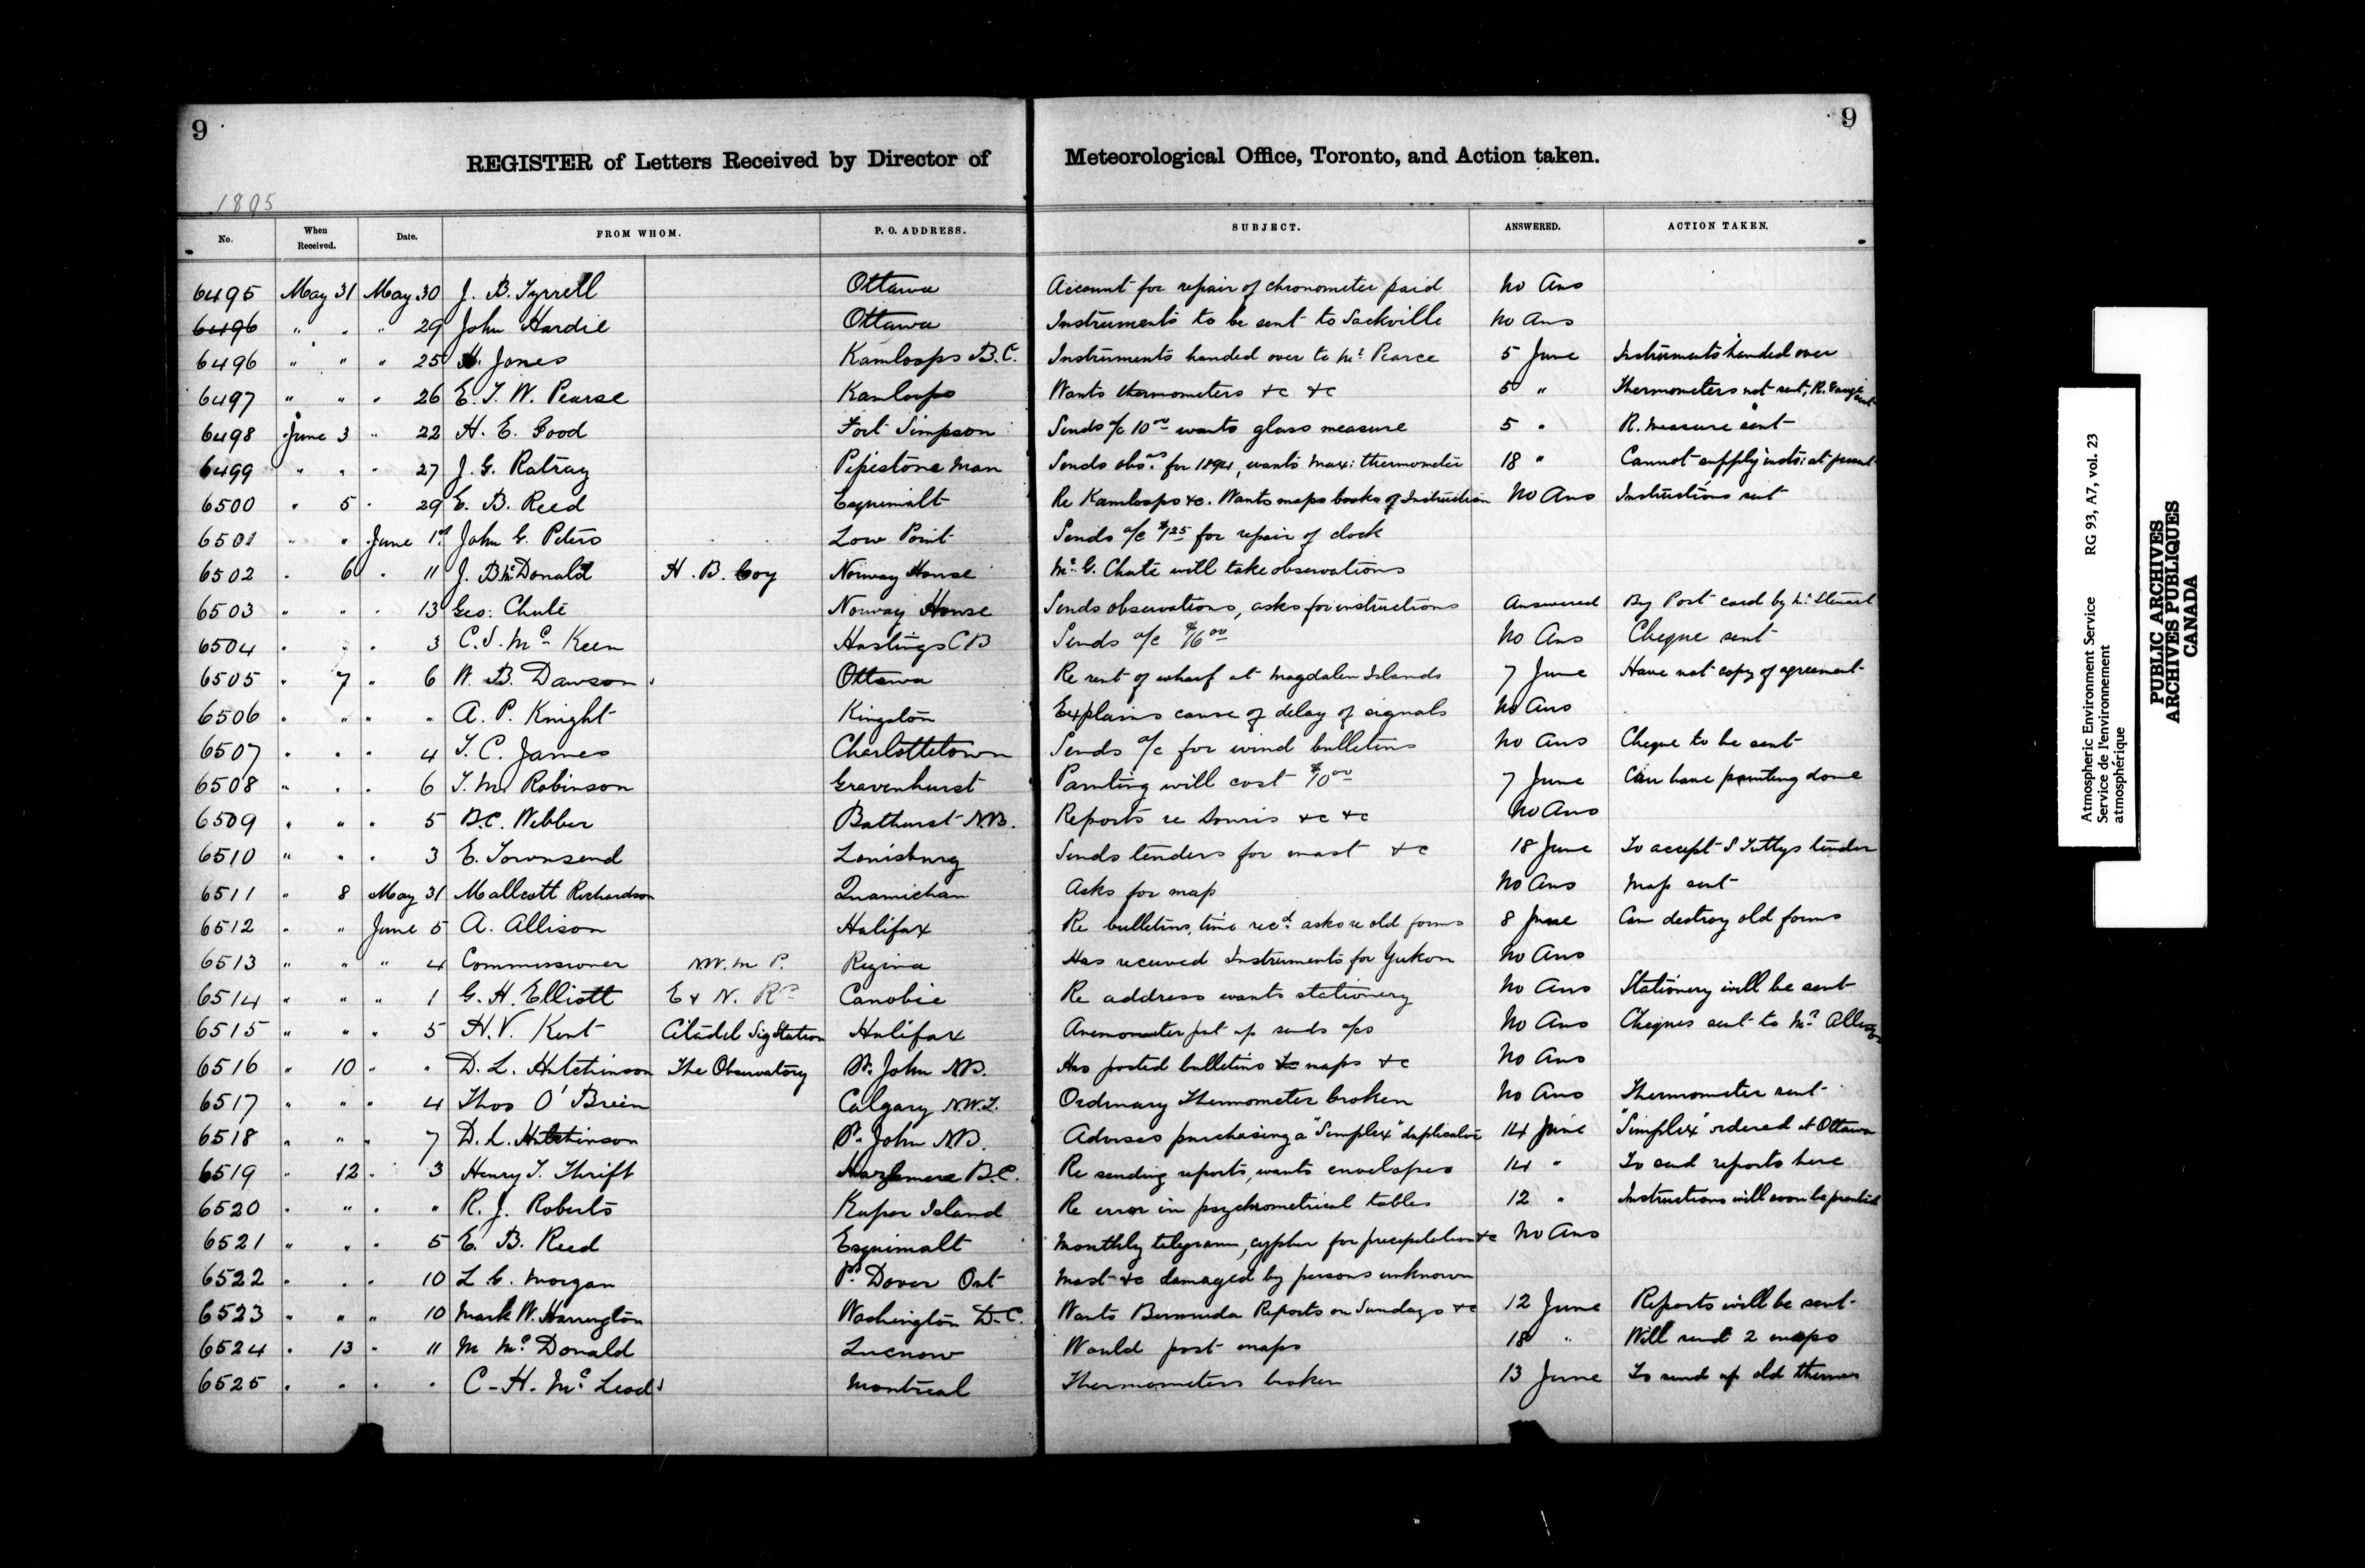 9
9
REGISTER of Letters Received by Director of Meteorological Office, Toronto, and Action taken.
1895
No. When Received. Date. FROM WHOM. P. O. ADDRESS. SUBJECT. ANSWERED. ACTION TAKEN.
6495 May 31 May 30 J. B. Tyrrell Ottawa Account for repair of chronometer paid No Ans
6496 " " " 29 John Hardie Ottawa Instruments to be sent to Sackville No Ans
6496 " " " 25 H. Jones Kamloops B.C. Instruments handed over to Mr Pearce 5 June Instruments handed over
6497 " " " 26 E. T. W. Pearse Kamloops Wants thermometers &c &c 5 " Thermometers not sent, R. Gauge sent
6498 June 3 " 22 H. E. Good Fort Simpson Sends a/c 10 00 wants glass measure 5 " R. measure sent
6499 " " " 27 J. G. Ratray Pipestone Man Sends obsns. for 1894, wants Max: thermometer 18 " Cannot supply insts: at present
6500 " 5 " 29 E. B. Reed Esquimalt Re Kamloops &c. Wants maps books of Instruction No Ans Instructions sent
6501 " " June 1st John G. Peters Low Point Sends a/c $1 25 for repair of clock
6502 " 6 " 11 J. B. McDonald H. B. Coy Norway House Mr. G. Chute will take observations
6503 " " " 13 Geo: Chute Norway House Sends observations, asks for instructions Answered By Post card by Mr Stewart
6504 " " " 3 C. S. Mc Keen Hastings CB Sends a/c $6 00 No Ans Cheque sent
6505 " 7 " 6 W. B. Dawson Ottawa Re rent of wharf at Magdalen Islands 7 June Have not copy of agreement
6506 " " " " A. P. Knight Kingston Explains cause of delay of signals No Ans
6507 " " " 4 T. C. James Charlottetown Sends a/c for wind bulletins No Ans Cheque to be sent
6508 " " " 6 T. M. Robinson Gravenhurst Painting will cost $10 00 7 June Can have painting done
6509 " " " 5 B.C. Webber Bathurst N.B. Reports re Souris &c &c No Ans
6510 " " " 3 E. Townsend Louisburg Sends tenders for mast &c 18 June To accept S Tuttys tender
6511 " 8 May 31 Mallcott Richardson Quamichan Asks for map No Ans Map sent
6512 " " June 5 A. Allison Halifax Re bulletins, time recd. asks re old forms 8 June Can destroy old forms
6513 " " " 4 Commissioner N.W.M P. Regina Has received Instruments for Yukon No Ans
6514 " " " 1 G. H. Elliott E & N. Ry Canobie Re address wants stationery No Ans Stationery will be sent
6515 " " " 5 H. V. Kent Citadel Sig Station Halifax Anemometer put up sends a/cs No Ans Cheques sent to Mr Allison
6516 " 10 " " D. L. Hutchinson The Observatory St. John N.B. Has posted bulletins &c maps &c No Ans
6517 " " " 4 Thos O'Brien Calgary N.W.T. Ordinary Thermometer broken No Ans Thermometer sent
6518 " " " 7 D. L. Hutchinson St. John N.B. Advises purchasing a "Simplex" duplicator 14 June "Simplex" ordered at Ottawa
6519 " 12 " 3 Henry T. Thrift Hazlemere B.C. Re sending reports, wants envelopes 14 " To send reports here
6520 " " " " R. J. Roberts Kuper Island Re error in psychrometrical tables 12 " Instructions will soon be printed
6521 " " " 5 E. B. Reed Esquimalt Monthly telegram, cypher for precipitation &c No Ans
6522 " " " 10 L G. Morgan Pt. Dover Ont Mast &c damaged by persons unknown
6523 " " " 10 Mark W. Harrington Washington D.C. Wants Bermuda Reports on Sundays &c 12 June Reports will be sent
6524 " 13 " 11 M Mc Donald Lucnow Would post maps 18 " Will send 2 maps
6525 " " " " C. H. Mc Leod Montreal Thermometers broken 13 June To send up old thermos
Atmospheric Environment Service RG 93, A7, vol. 23
Service de l'environnement
atmosphérique
PUBLIC ARCHIVES
ARCHIVES PUBLIQUES
CANADA